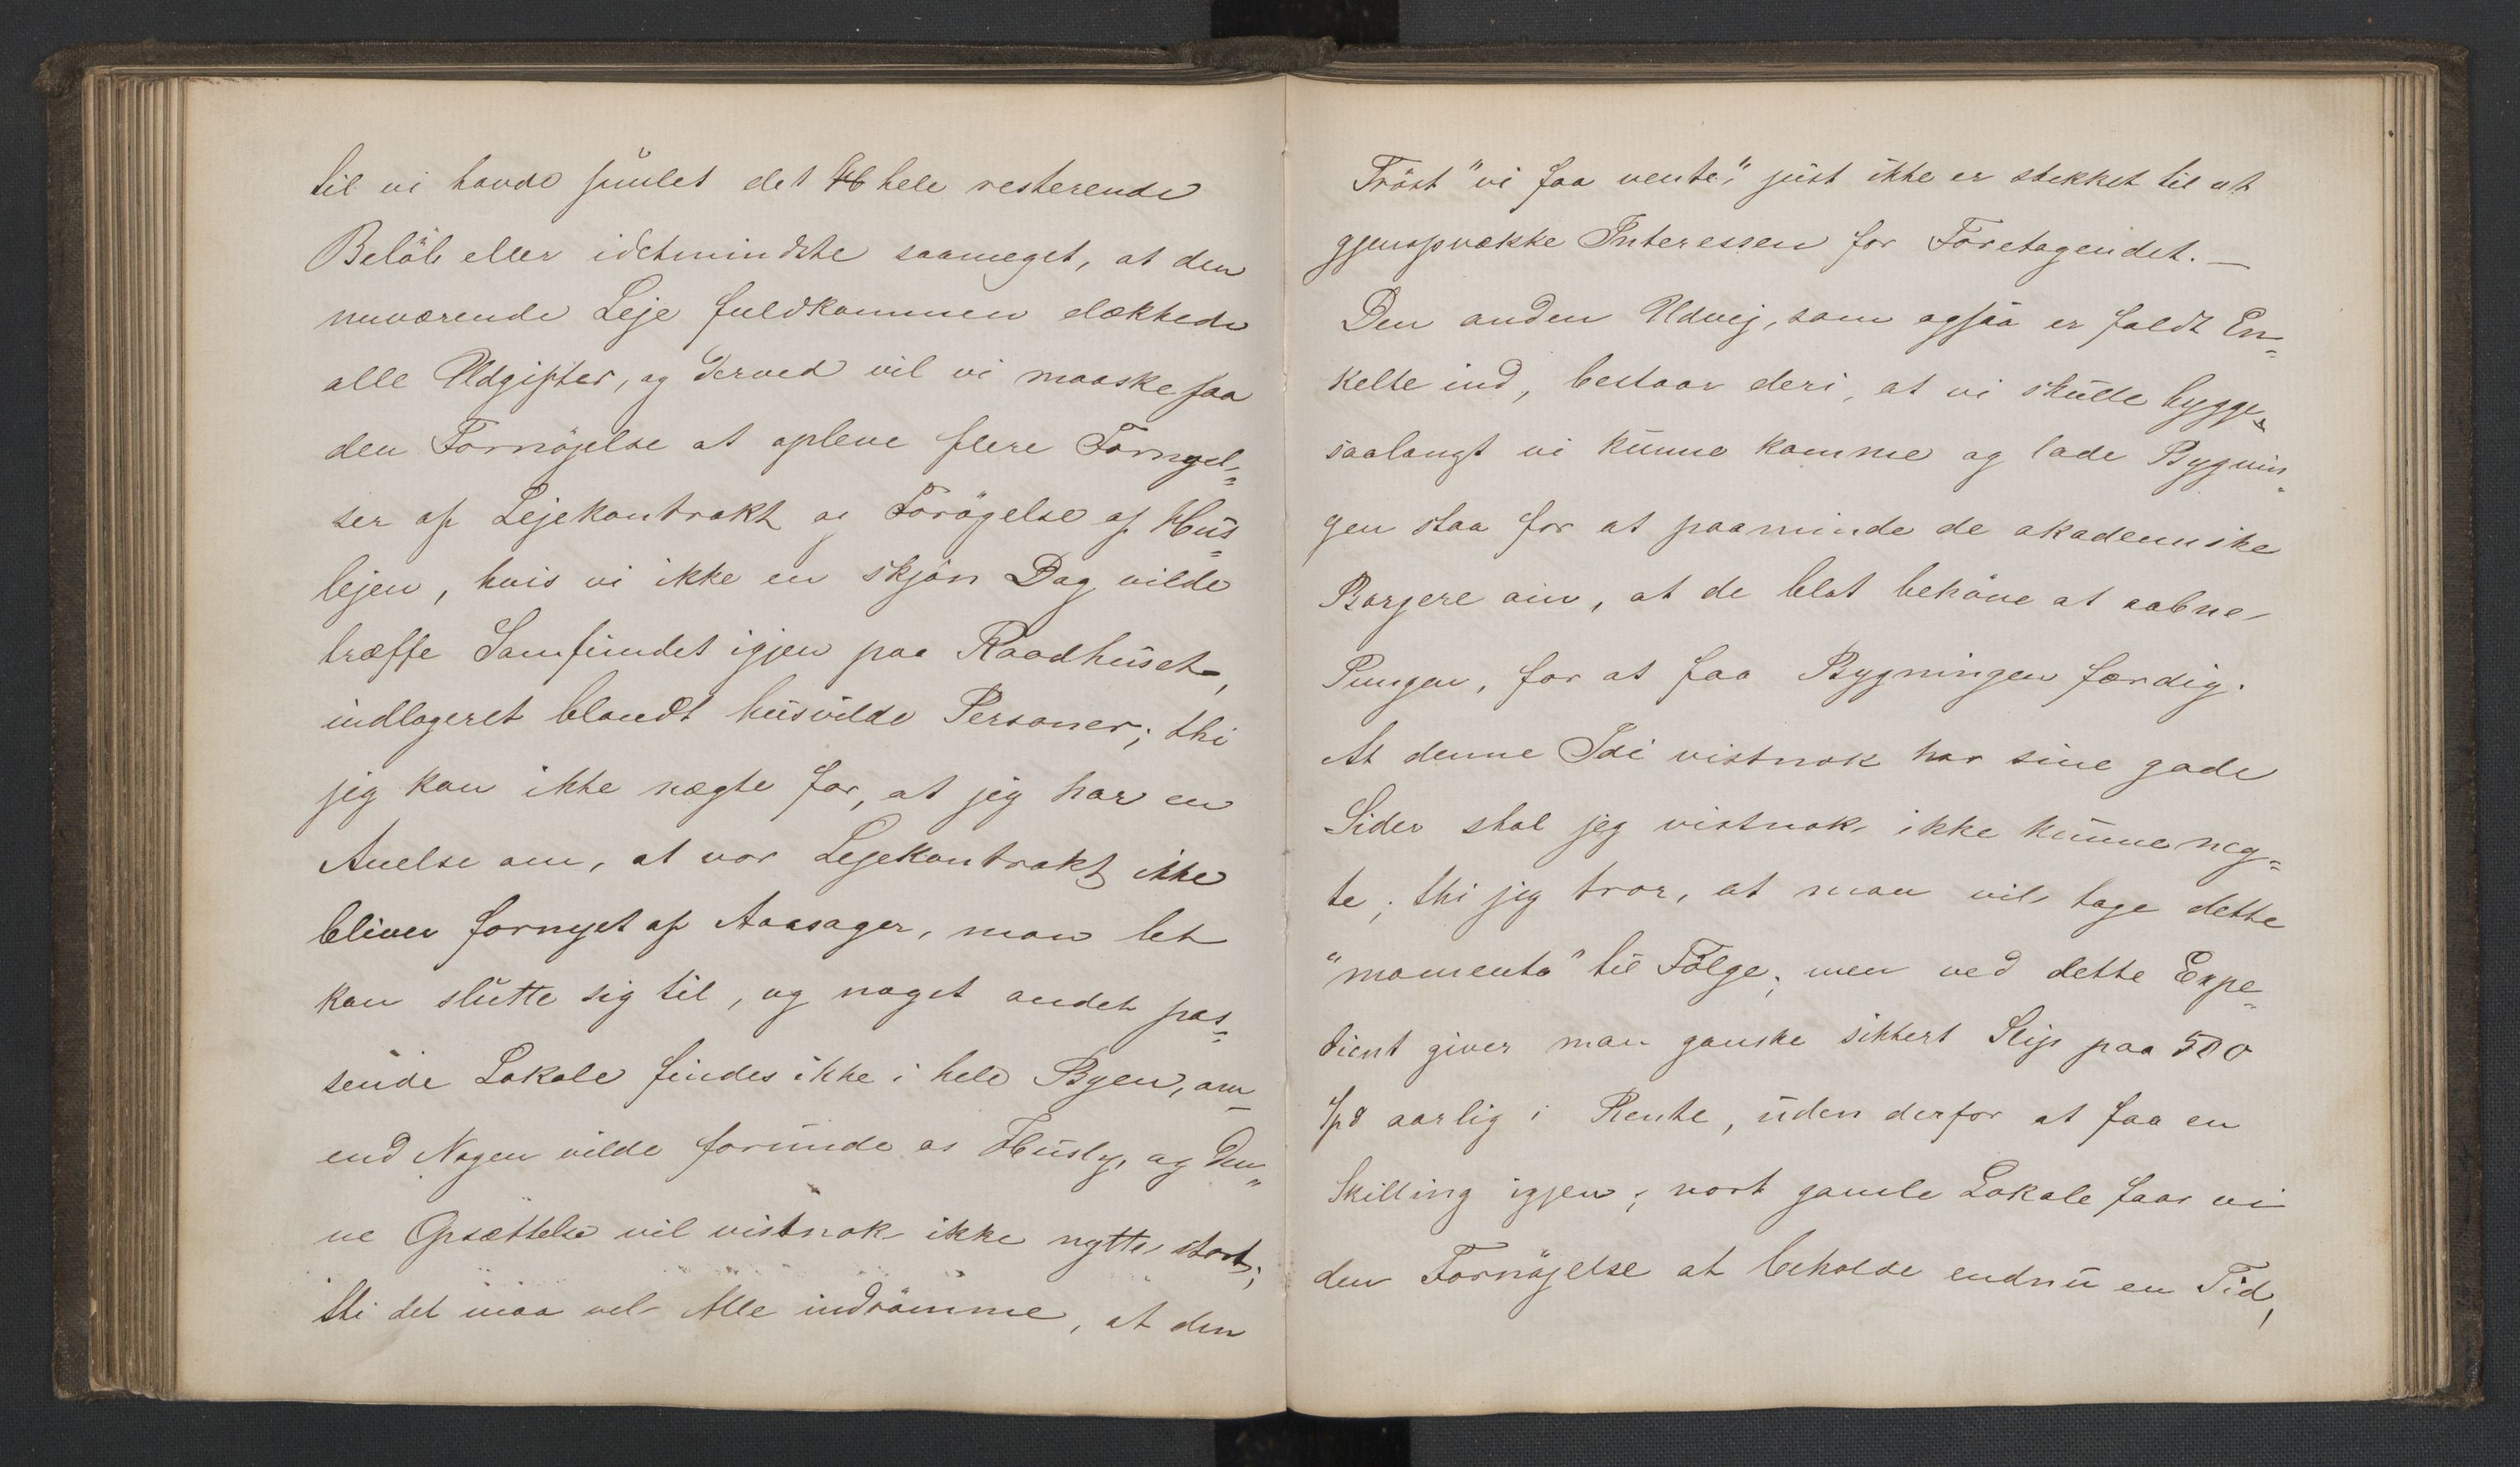 til vi havde samlet det hele resterende
Beløb eller idetmindste saameget, at den
nuværende Leje fuldkommen dækkede
alle Udgifter, og derved vil vi maaske faa
den Fornøjelse at opleve flere Fornyel=
ser af Lejekontrakt og Forøgelse af Hus=
lejen, hvis vi ikke en skjøn Dag vilde
træffe Samfundet igjen paa Raadhuset,
indlogeret blandt husvilde Personer; thi
jeg kan ikke nægte for, at jeg har en
Anelse om, at vor Lejekontrakt ikke
bliver fornyet af Aarsager, man let
kan slutte sig til, og noget andet pas=
sende Lokale findes ikke i hele Byen, om
end Nogen vilde forunde os Husly, og Den=
ne Opsættelse vil vistnok ikke nytte stort;
thi det maa vel Alle indrømme, at den
Trøst "vi faa vente", just ikke er skikket til at
gjenopvække Interessen for Foretagendet. —
Den anden Udvej, som ogsaa er faldt En=
kelte ind, bestaar deri, at vi skulle bygge
saalangt vi kunne komme og lade Bygnin=
gen staa for at paaminde de akademiske
Borgere om, at de blot behøve at aabne
Pungen, for at faa Bygningen færdig.
At denne Idé vistnok har sine gode
Sider skal jeg vistnok ikke kunne neg=
te; thi jeg tror, at man vil tage dette
"momento" til Følge; men ved dette Expe=
dient giver man ganske sikkert Slip paa 500
Spd aarlig i Rente, uden derfor at faa en
Skilling igjen; vort gamle Lokale faar vi
den Fornøjelse at beholde endnu en Tid,